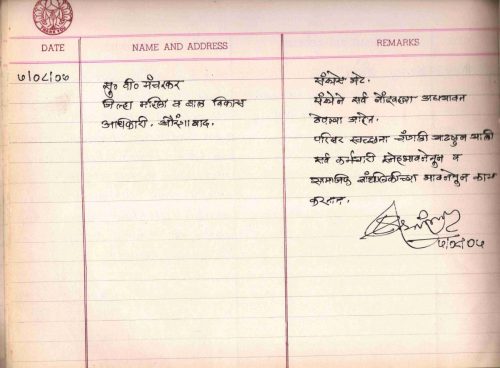 DATE
NAME AND ADDRESS
REMARKS
७/०८/०७
सु० वी० मंचरकर
जिल्हा महिला व बाल विकास
अधिकारी. औरंगाबाद.
संस्थेस भेट.
संस्थेने सर्व नोंदवह्या अद्ययावत
ठेवल्या आहेत.
परिसर स्वच्छता चांगली आढळून आली
सर्व कर्मचारी स्नेहभावनेतून व
सामाजिक बांधिलकीच्या भावनेतून काम
करतात.